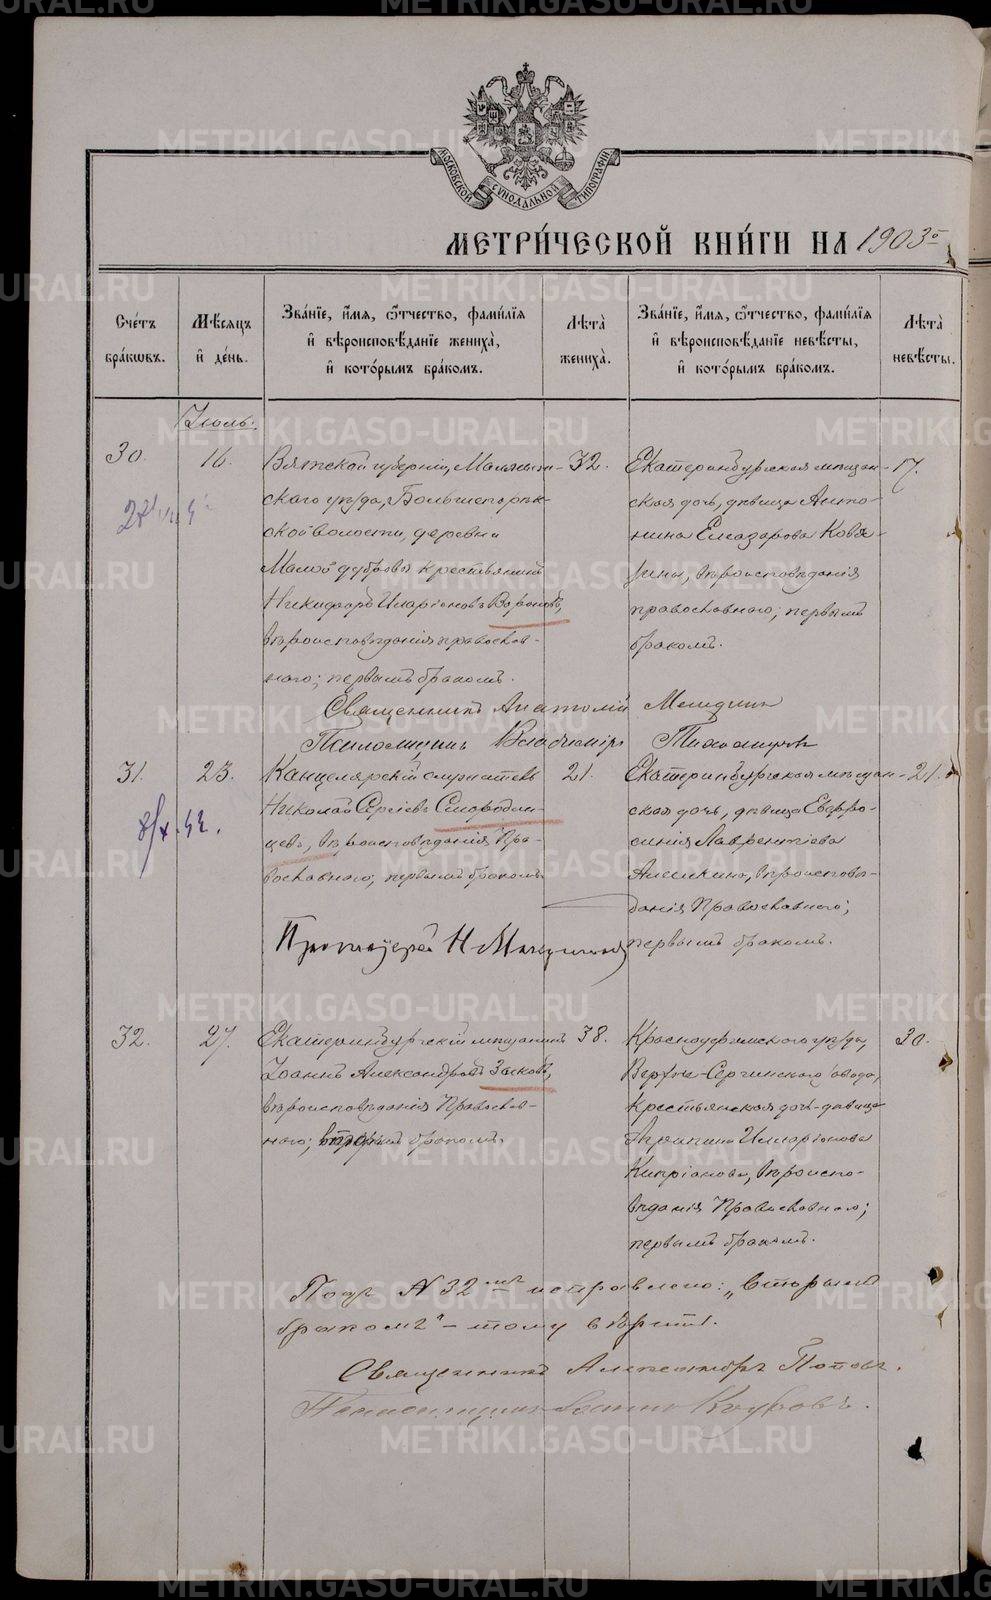 МОСКОВСКОЙ СѴНОДАЛЬНОЙ ТИПОГРАФІИ
МЕТРИ́ЧЕСКОЙ КНИ́ГИ НА 1903
Сче́тъ бра́кωвъ.
Мѣ́сяцъ и҆ де́нь.
Зва́нїе, и҆́мя, ѻ҆́тчество, фами́лїя и҆ вѣроисповѣ́данїе жениха̀, и҆ кото́рымъ бра́комъ.
Лѣ́та жениха̀.
Зва́нїе, и҆́мя, ѻ҆́тчество, фами́лїя и҆ вѣроисповѣ́данїе невѣ́сты, и҆ кото́рымъ бра́комъ.
Лѣ́та невѣ́сты.
Іюль.
30.
16.
Вятской губерніи, Малмыж-
скаго уѣзда,
ской волости, деревни
Малой дубровы крестьянинъ
Никифоръ Иларіоновъ Вороновъ,
вѣроисповѣданія православ-
наго; первымъ бракомъ.
32.
Екатеринбургская мѣщан-
ская дочь, дѣвица Анто-
нина Елеазарова Ковя-
зина, вѣроисповѣданія
православнаго; первымъ
бракомъ.
17.
Священникъ Анатолій
Псаломщикъ Владиміръ Тихомировъ
31.
23.
Канцелярскій служитель
Николай Сергіевъ Смородин-
цевъ, вѣроисповѣданія Пра-
вославнаго; первымъ бракомъ
21.
Екатеринбургская мѣщан-
ская дочь, дѣвица Евфро-
синія Лаврентіева
Алешкина, вѣроисповѣ-
данія Православнаго;
первымъ бракомъ.
21.
8/X.42.
Протоіерей Н
32.
27.
Екатеринбургскій мѣщанинъ
Іоаннъ Александровъ Засковъ,
вѣроисповѣданія Православ-
наго; вторымъ бракомъ.
38.
Красноуфимскаго уѣзда,
Верхне-Сергинскаго завода,
крестьянская дочь-дѣвица
Агрипина Иларіонова
Кипріанова, вѣроиспо-
вѣданія Православнаго;
первымъ бракомъ.
30.
Подъ № 32мъ исправлено: „вторымъ
бракомъ" – тому вѣрить.
Священникъ Александръ Поповъ.
Псаломщикъ Іоаннъ
METRIKI.GASO-URAL.RU